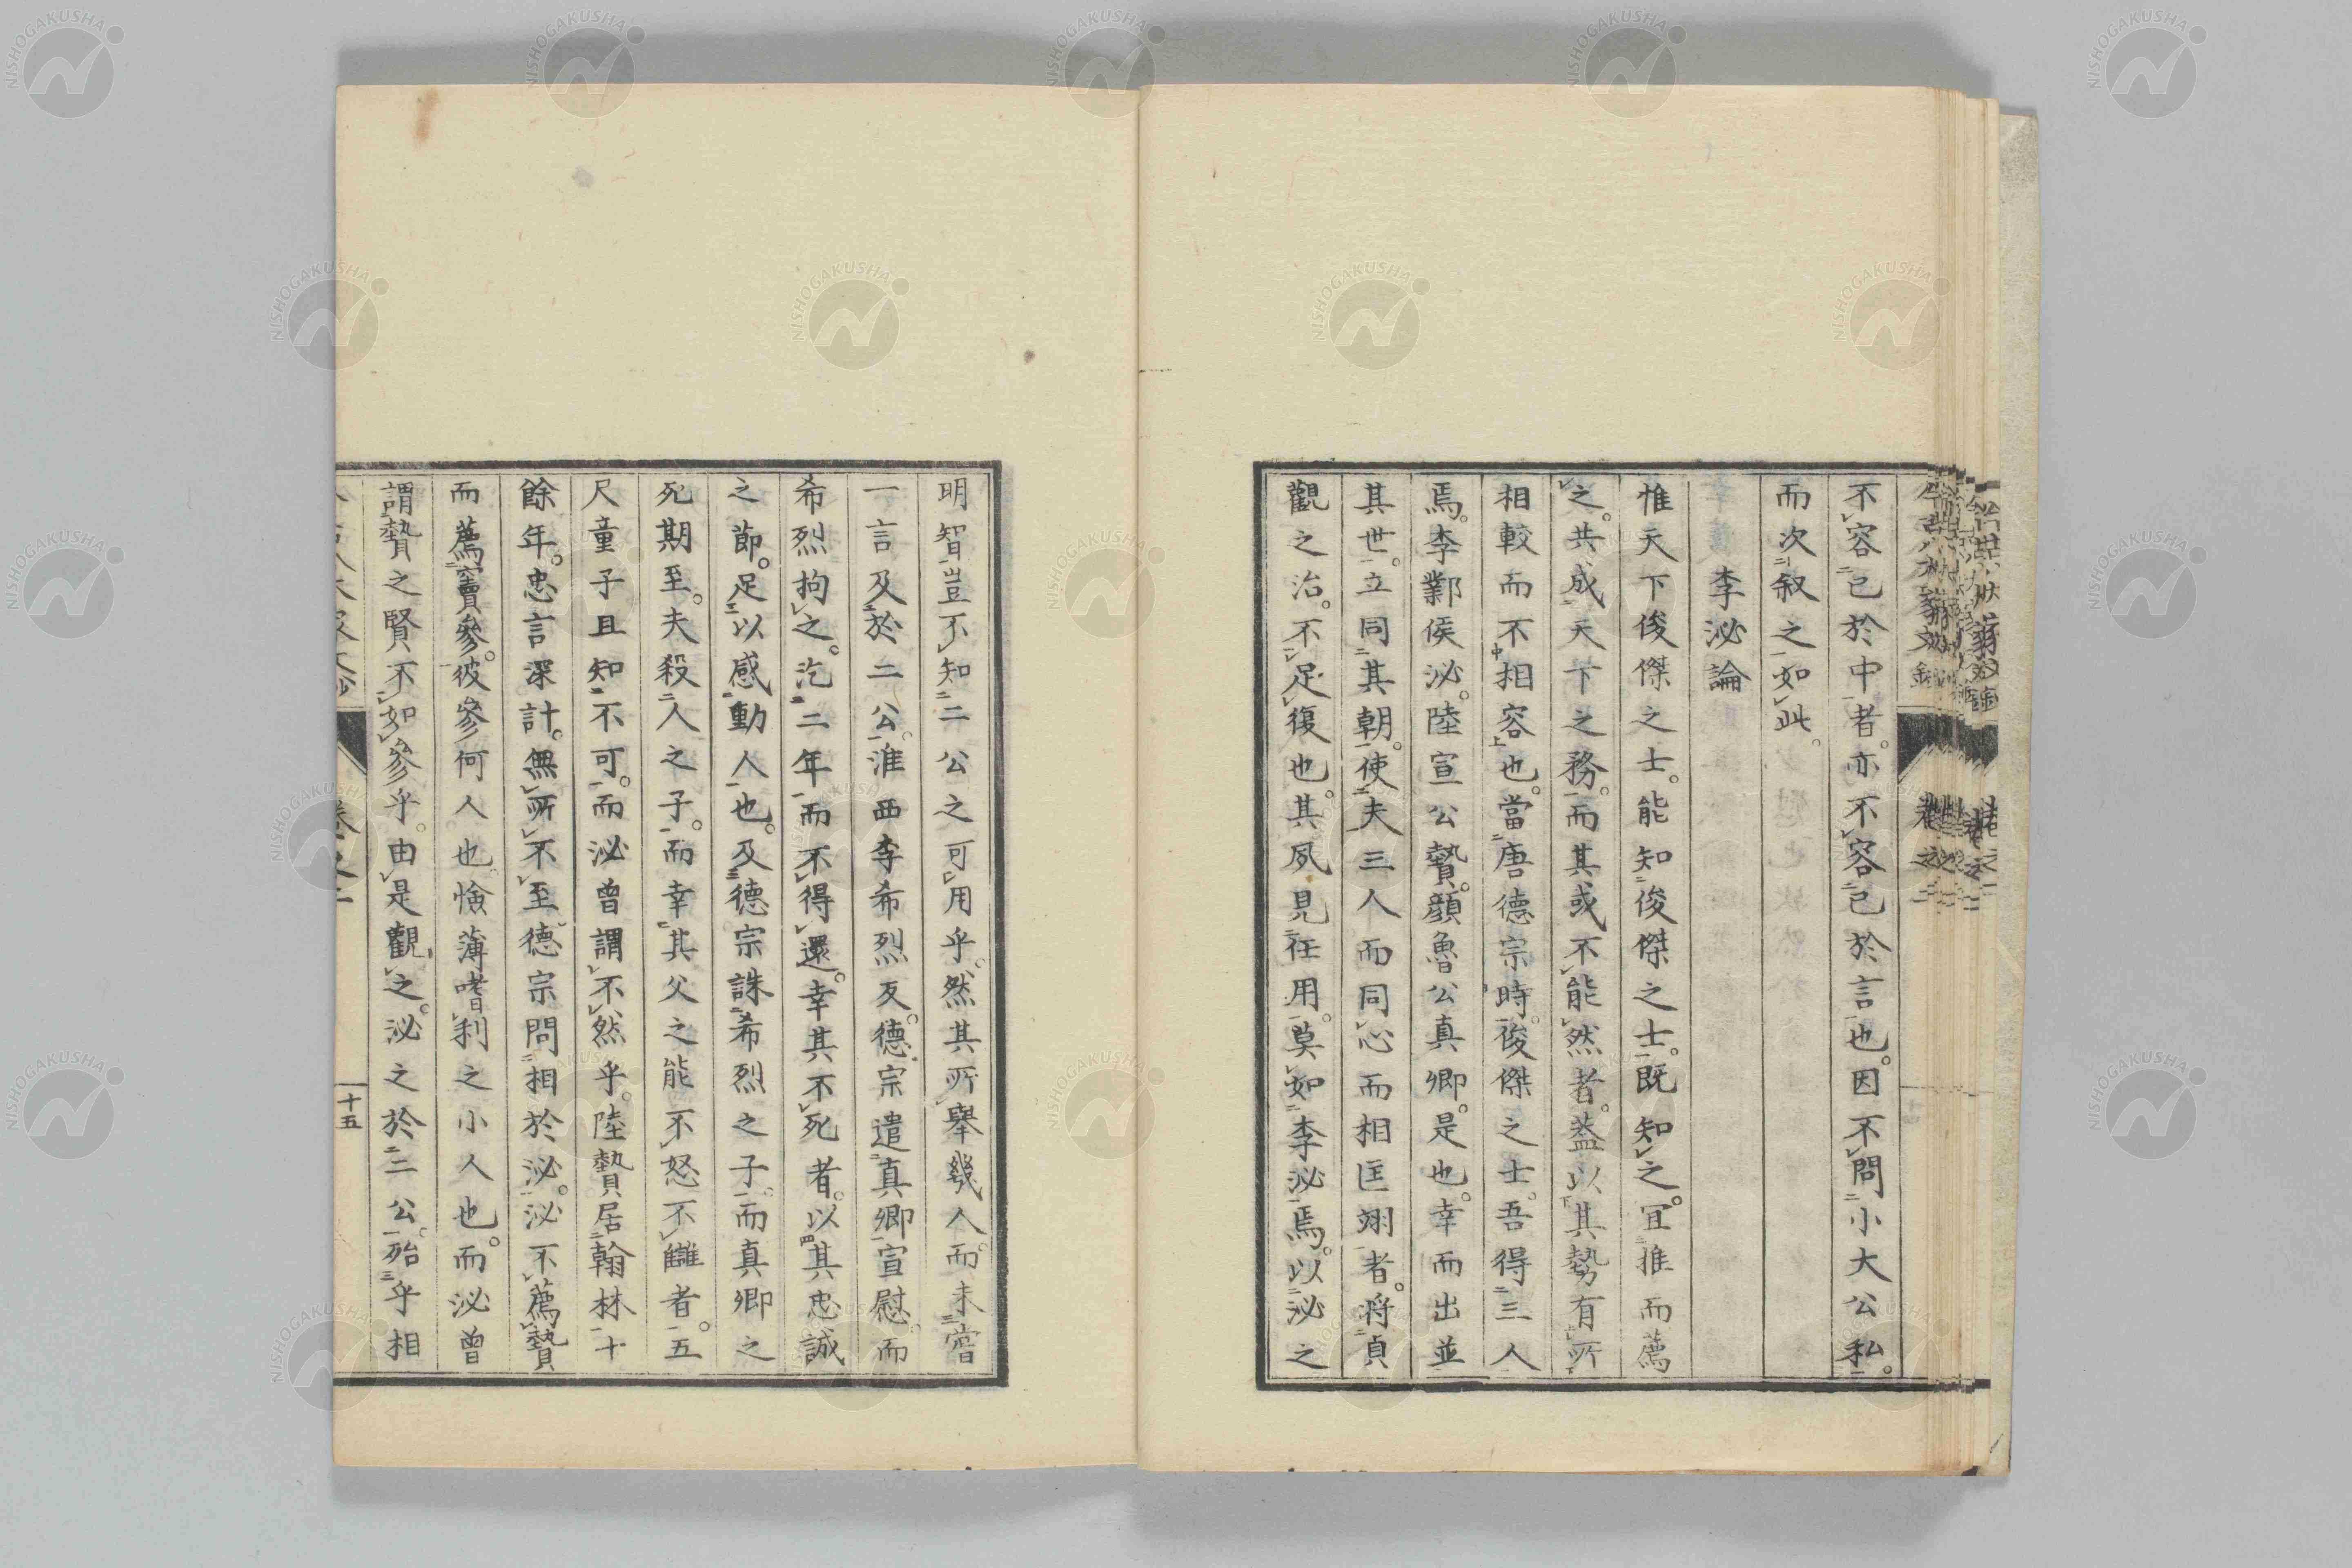 不容已於中者亦不容已於言也因不問小大公私
而次叙之如此
李泌論
惟天下俊傑之士能知俊傑之士既知之宜推而薦
之共成天下之務而其或不能然者葢以其勢有所
相較而不相容也當唐德宗時俊傑之士吾得三人
焉李鄴侯泌陸宣公贄顔魯公真卿是也幸而出並
其世立同其朝使夫三人而同心而相匡翊者将貞
觀之治不足復也其夙見任用莫如李泌焉以泌之
明智豈不知二公之可用乎然其所舉幾人而未嘗
一言及於二公淮西李希烈反德宗遣真卿宣慰而
希烈拘之汔二年而不得還幸其不死者以其忠誠
之節足以感動人也及德宗誅希烈之子而真卿之
死期至夫殺人之子而幸其父之能不怒不讎者五
尺童子且知不可而泌曾謂不然乎陸贄居翰林十
餘年忠言深計無所不至德宗問相於泌泌不薦贄
而薦竇參彼參何人也憸薄嗜利之小人也而泌曾
謂贄之賢不如參乎由是觀之泌之於二公殆乎相
卷之二
十五
NISHOGAKUSHA